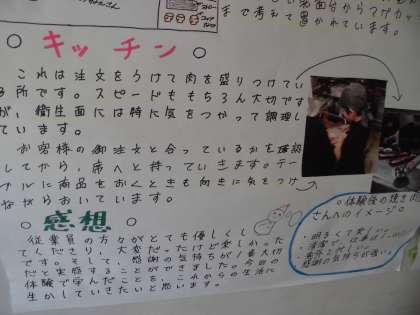 まで考えて置かれています。
○キッチン○
これは注文をうけて肉を盛りつけてい
る所です。スピードももちろん大切です
が、衛生面には特に気をつかって調理し
ています。
お客様の御注文と合っているかを確認
してから、席へと持っていきます。テー
ブルに商品をおくときも向きに気をつけ
ながらおいています。
○感想○
従業員の方々がとても優しくし
てくださり、大変だったけど楽しかった
です。そして、感謝の気持ちが1番大切
だと実感することができました。今回の
体験で学んだことを、これからの生活に
生かしていきたいと思います。
○体験後の焼き肉
さんへのイメージ。
・明るくて
・清潔で
・感謝の気持ちが強い。